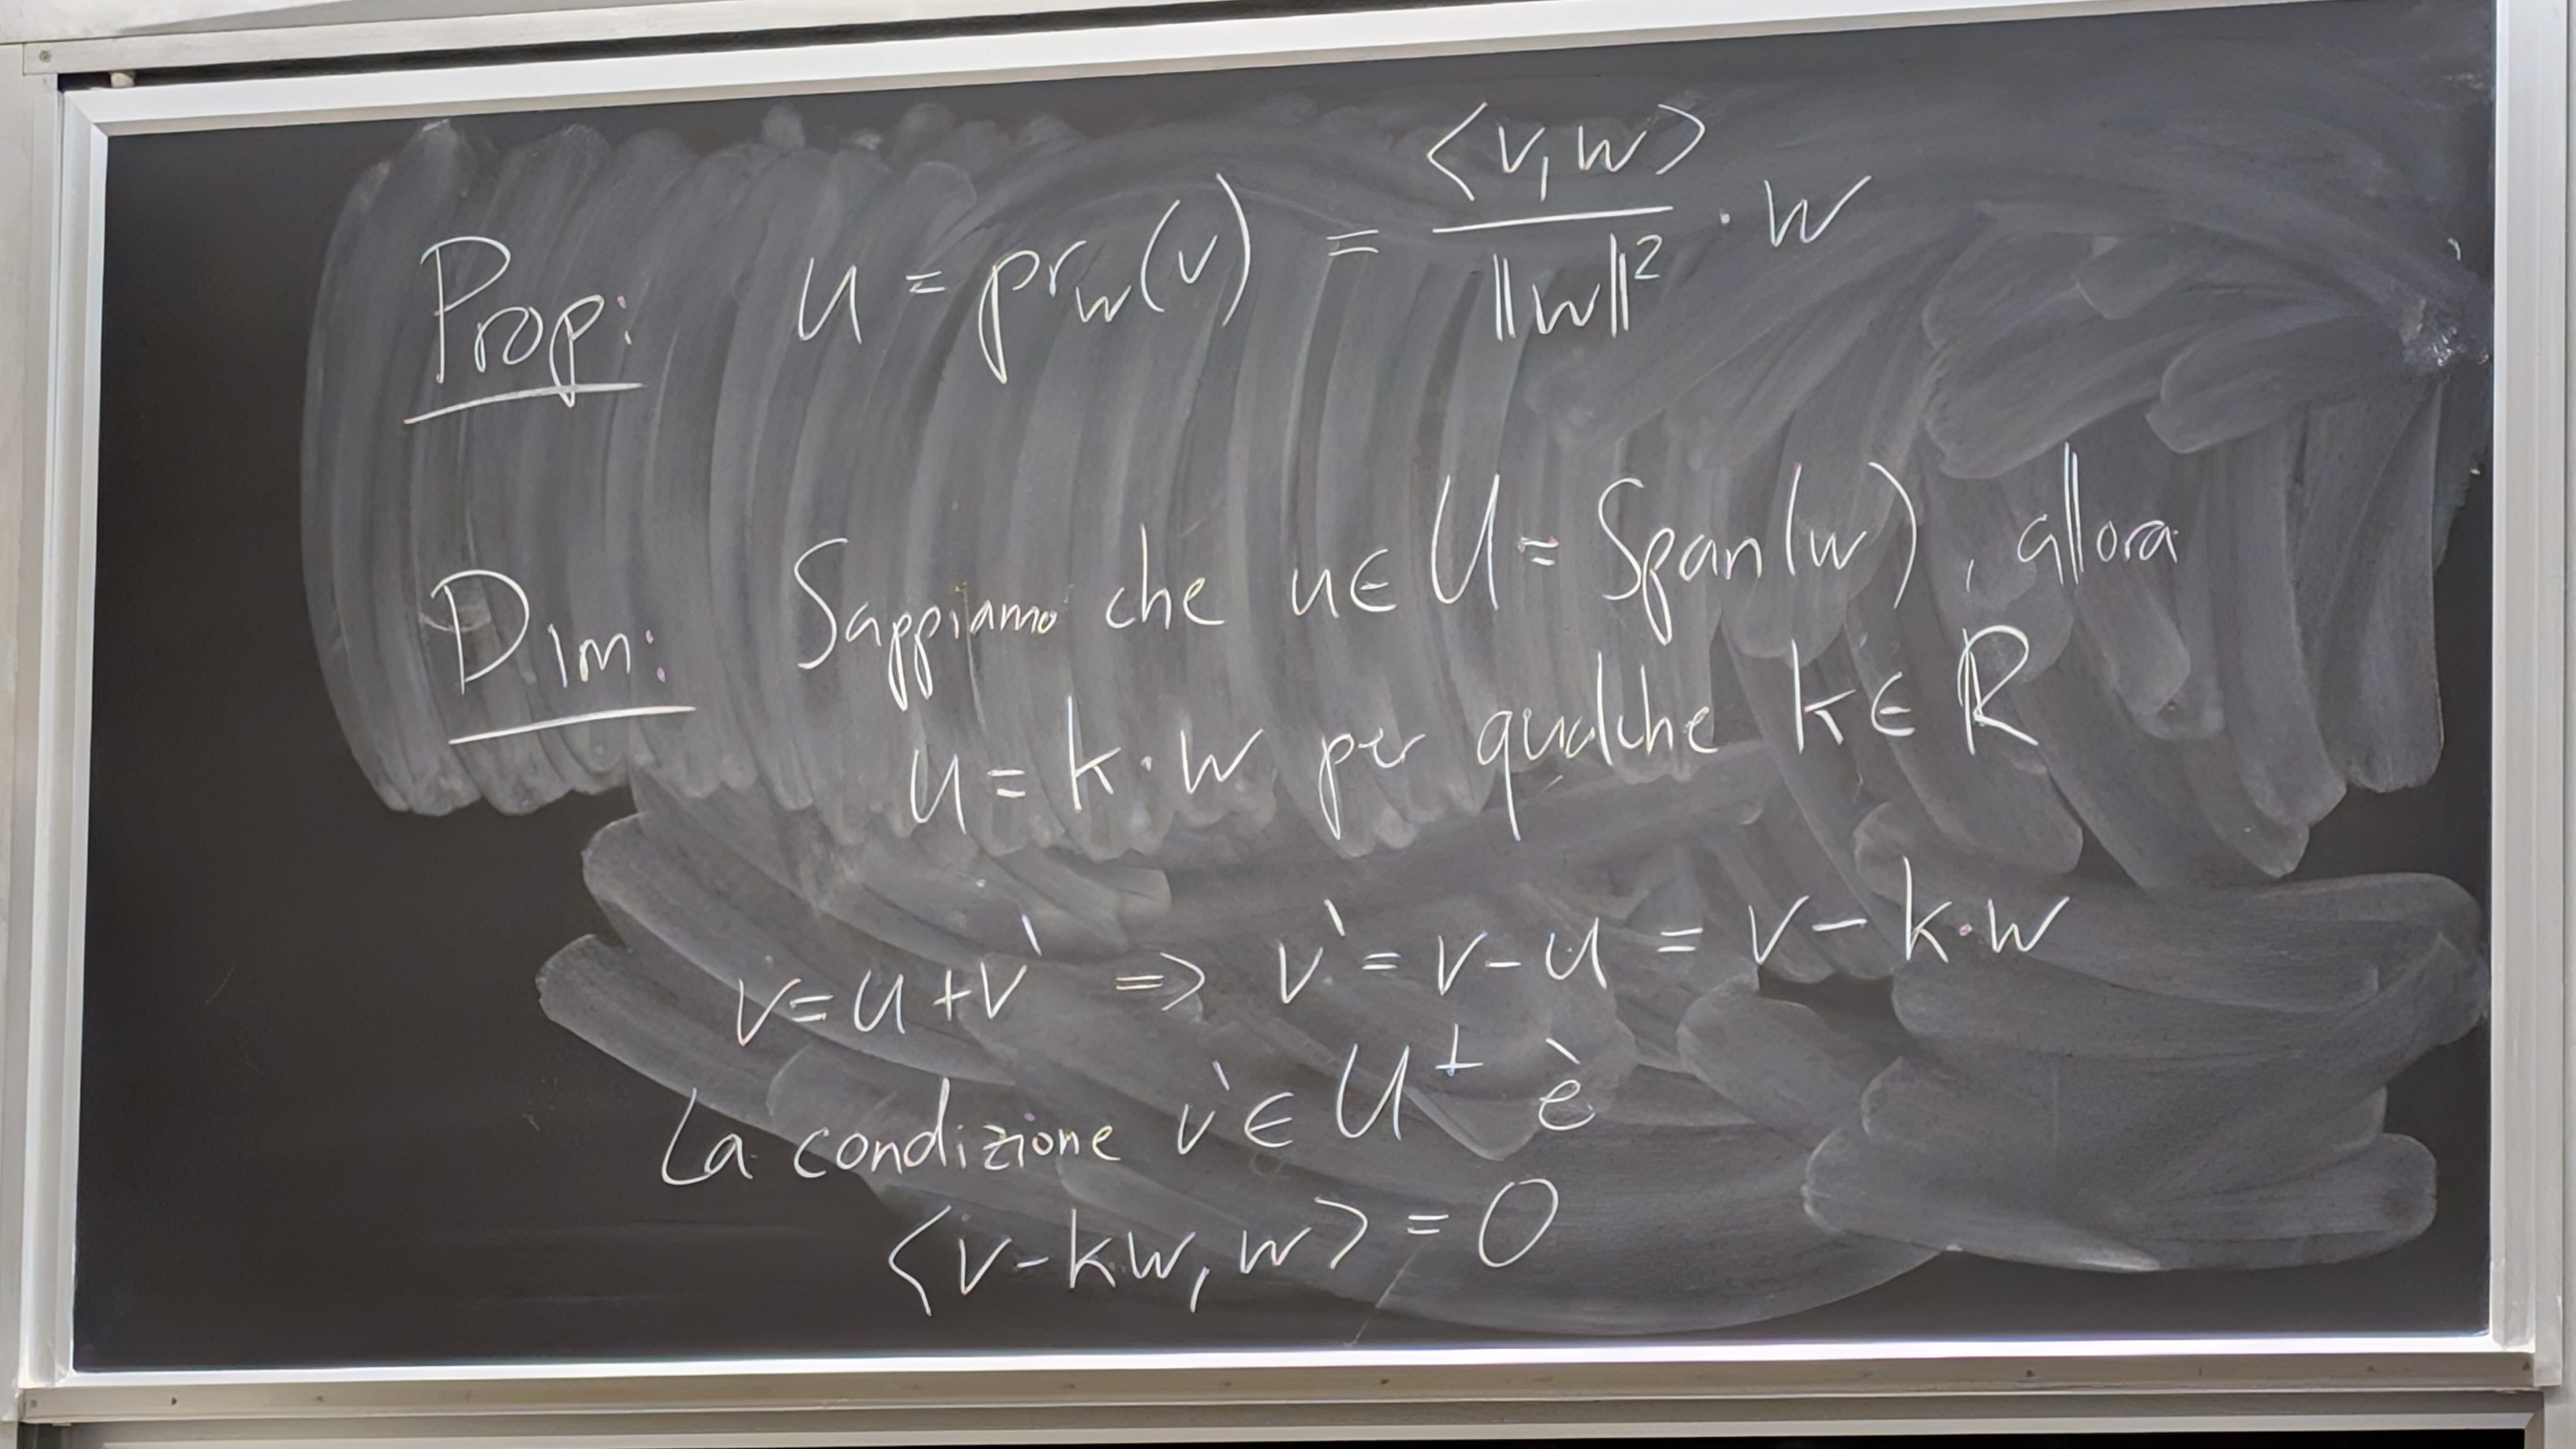 Prop: u = pr_w(v) = <v, w> / ||w||² · w
Dim: Sappiamo che u ∈ U = Span(w), allora
u = k · w per qualche k ∈ ℝ
v = u + v' ⇒ v' = v - u = v - k · w
La condizione v' ∈ U^⊥ è
<v - kw, w> = 0